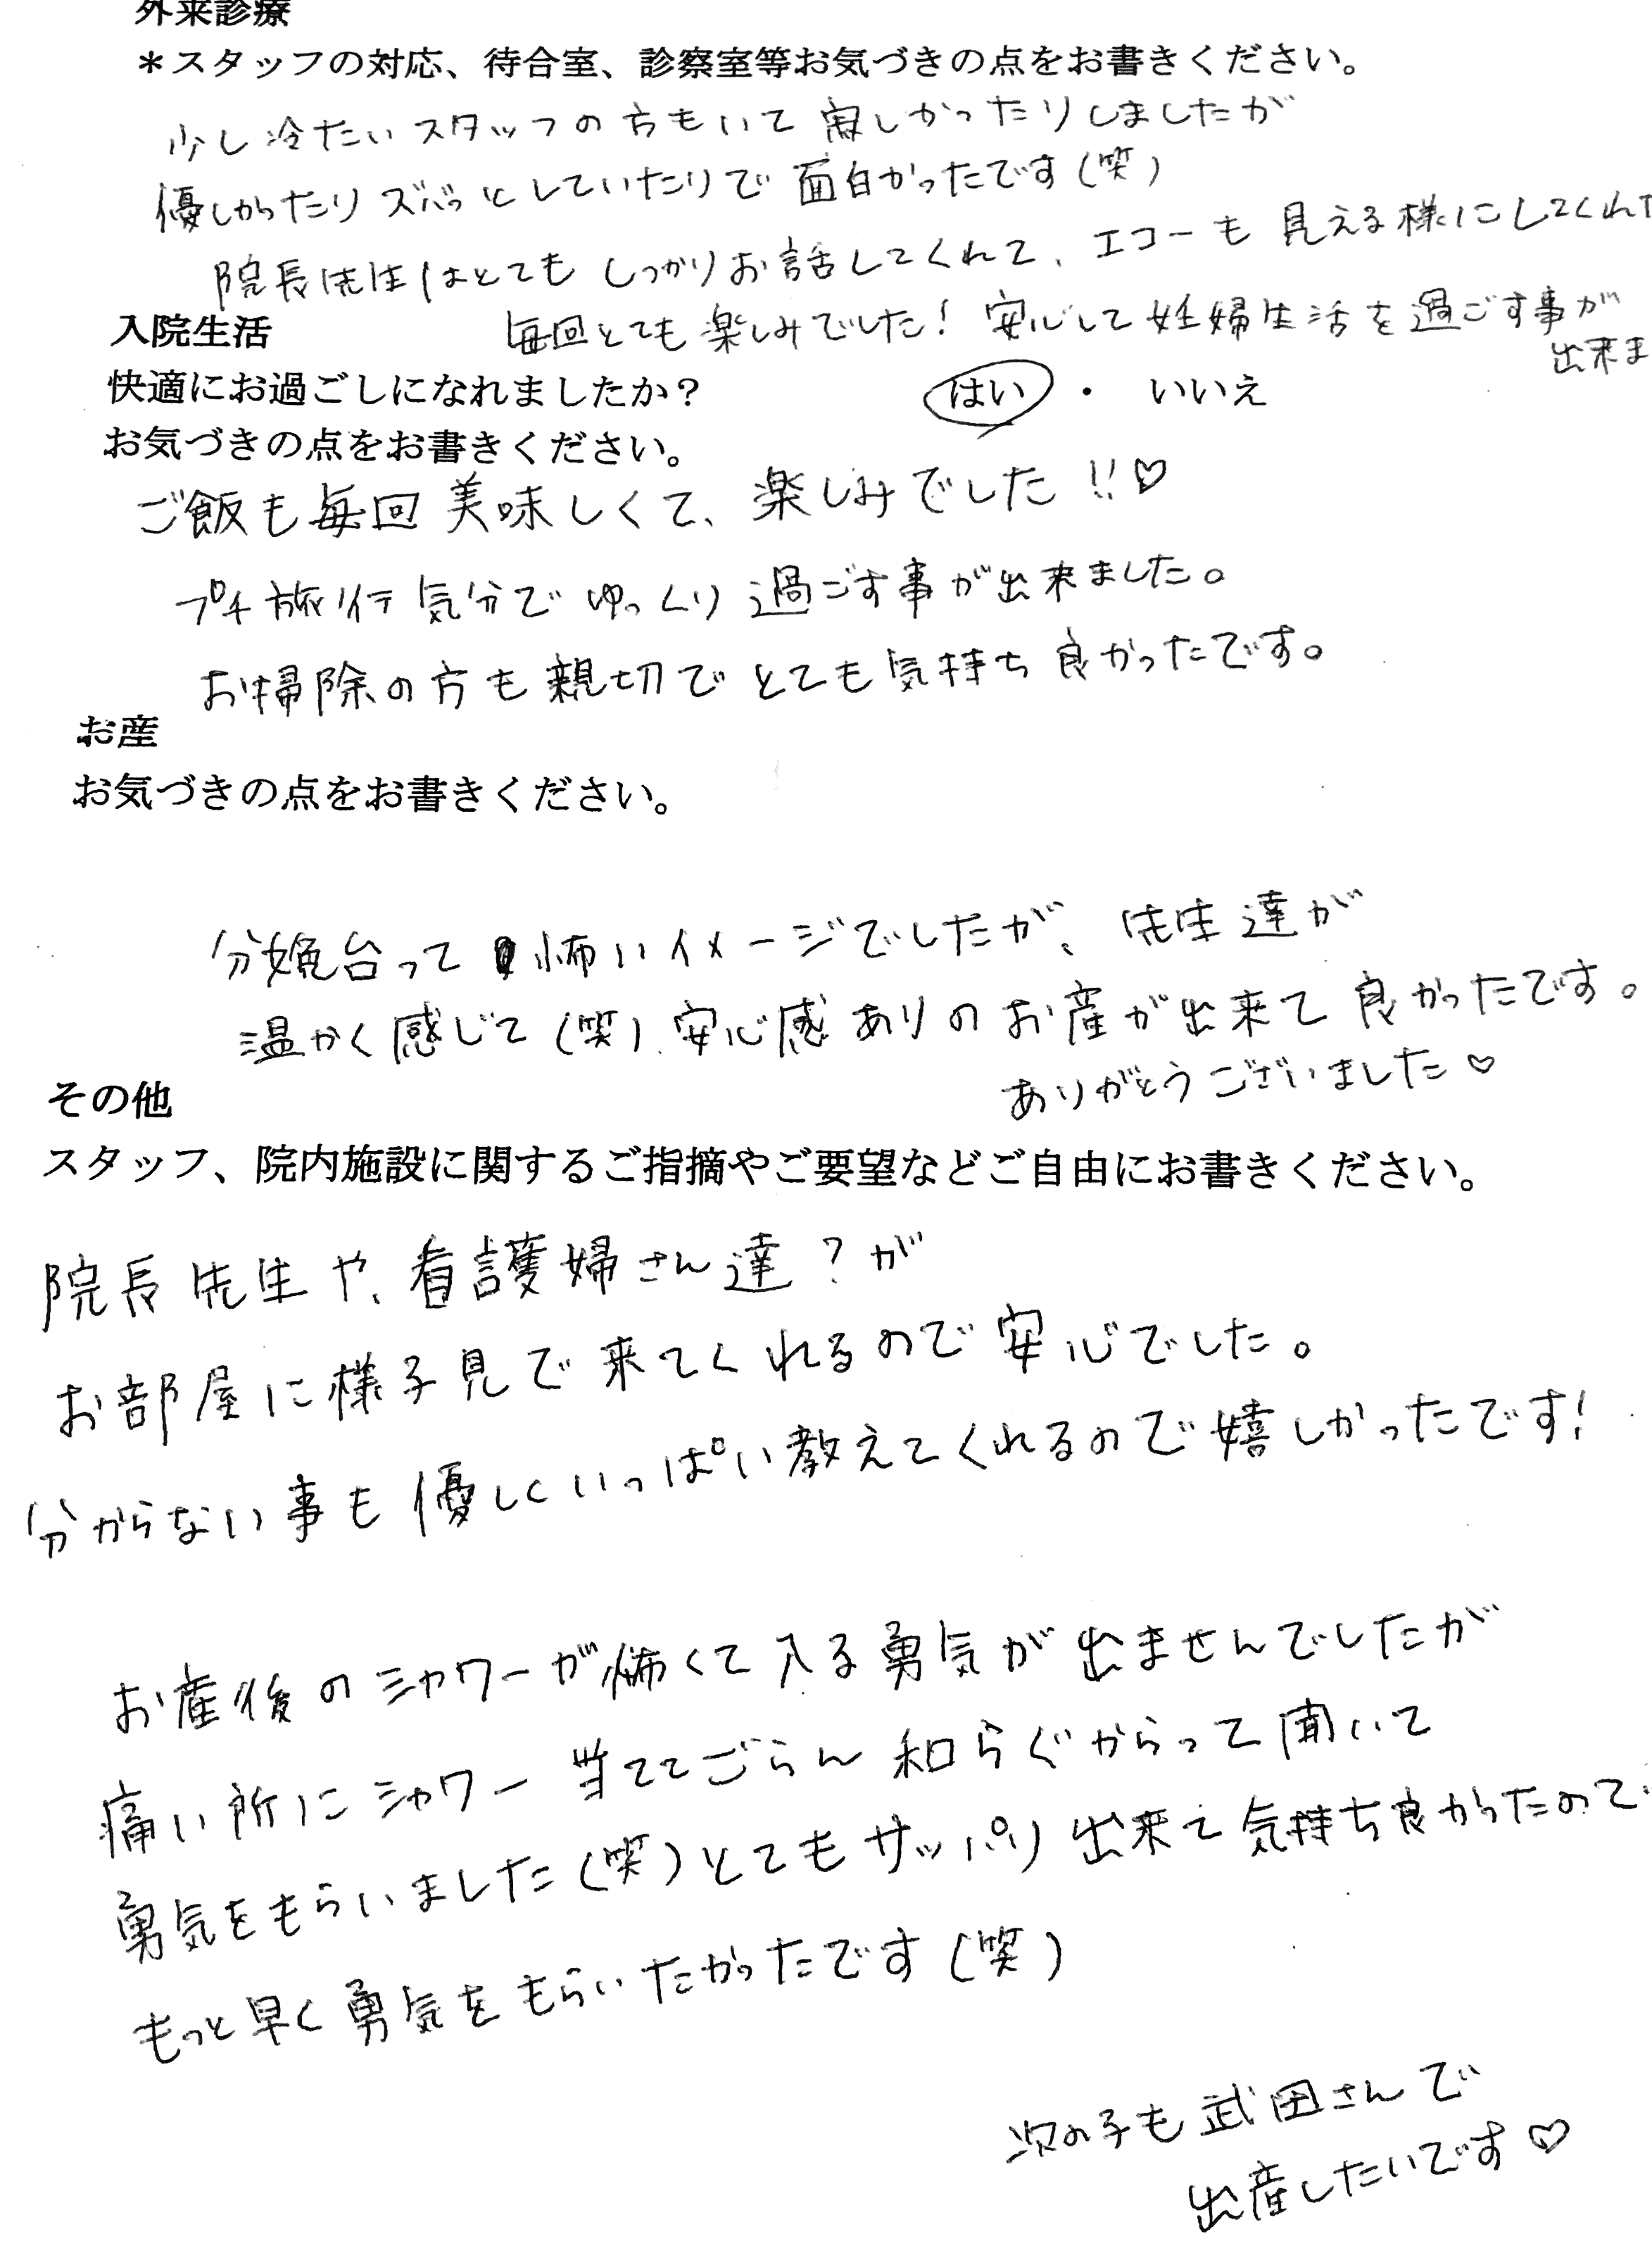 外来診療
＊スタッフの対応、待合室、診察室等お気づきの点をお書きください。
少し冷たいスタッフの方もいて寂しかったりしましたが
優しかったりズバっとしていたりで面白かったです(笑)
院長先生はとてもしっかりお話してくれて、エコーも見える様にしてくれて
毎回とても楽しみでした！安心して妊婦生活を過ごす事が
出来ま
入院生活
快適にお過ごしになれましたか？　はい・いいえ
お気づきの点をお書きください。
ご飯も毎回美味しくて、楽しみでした!!♡
プチ旅行気分でゆっくり過ごす事が出来ました。
お掃除の方も親切でとても気持ち良かったです。
お産
お気づきの点をお書きください。
分娩台って怖いイメージでしたが、先生達が
温かく感じて(笑)、安心感ありのお産が出来て良かったです。
ありがとうございました♡
その他
スタッフ、院内施設に関するご指摘やご要望などご自由にお書きください。
院長先生や、看護婦さん達？が
お部屋に様子見で来てくれるので安心でした。
分からない事も優しくいっぱい教えてくれるので嬉しかったです！
お産後のシャワーが怖くて入る勇気が出ませんでしたが
痛い所にシャワー当ててごらん和らぐからって聞いて
勇気をもらいました(笑)とてもサッパリ出来て気持ち良かったので
もっと早く勇気をもらいたかったです(笑)
次の子も武田さんで
出産したいです♡